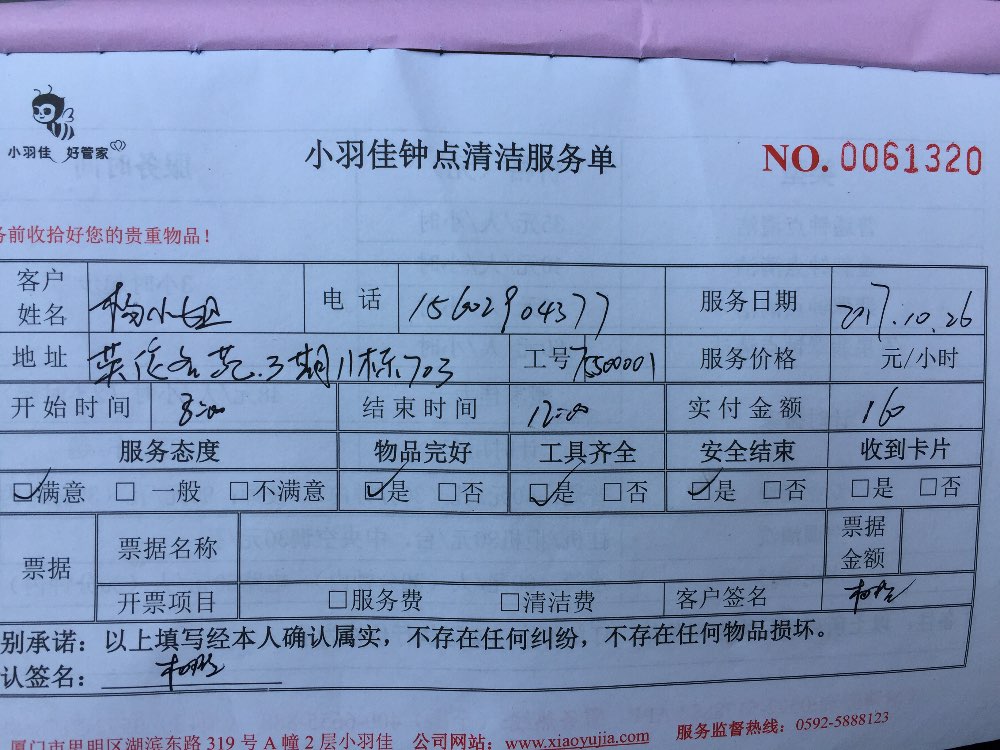 小羽佳 好管家
小羽佳钟点清洁服务单
NO. 0061320
务前收拾好您的贵重物品！
客户姓名 杨小姐 电话 15602904377 服务日期 2017.10.26
地址 3期11栋703 工号 7500001 服务价格 元/小时
开始时间 8:00 结束时间 12:00 实付金额 160
服务态度 物品完好 工具齐全 安全结束 收到卡片
☑满意 □一般 □不满意 ☑是 □否 ☑是 □否 ☑是 □否 □是 □否
票据 票据名称 票据金额
开票项目 □服务费 □清洁费 客户签名
别承诺：以上填写经本人确认属实，不存在任何纠纷，不存在任何物品损坏。
认签名：
厦门市思明区湖滨东路 319 号 A 幢 2 层小羽佳 公司网站：www.xiaoyujia.com 服务监督热线：0592-5888123